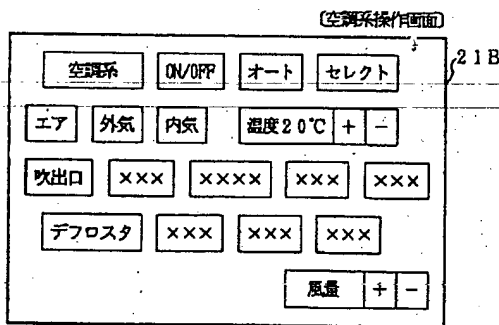 〔空調系操作画面〕
21B
空調系 ON/OFF オート セレクト
エア 外気 内気 温度20℃ + −
吹出口 ××× ×××× ××× ×××
デフロスタ ××× ××× ×××
風量 + −